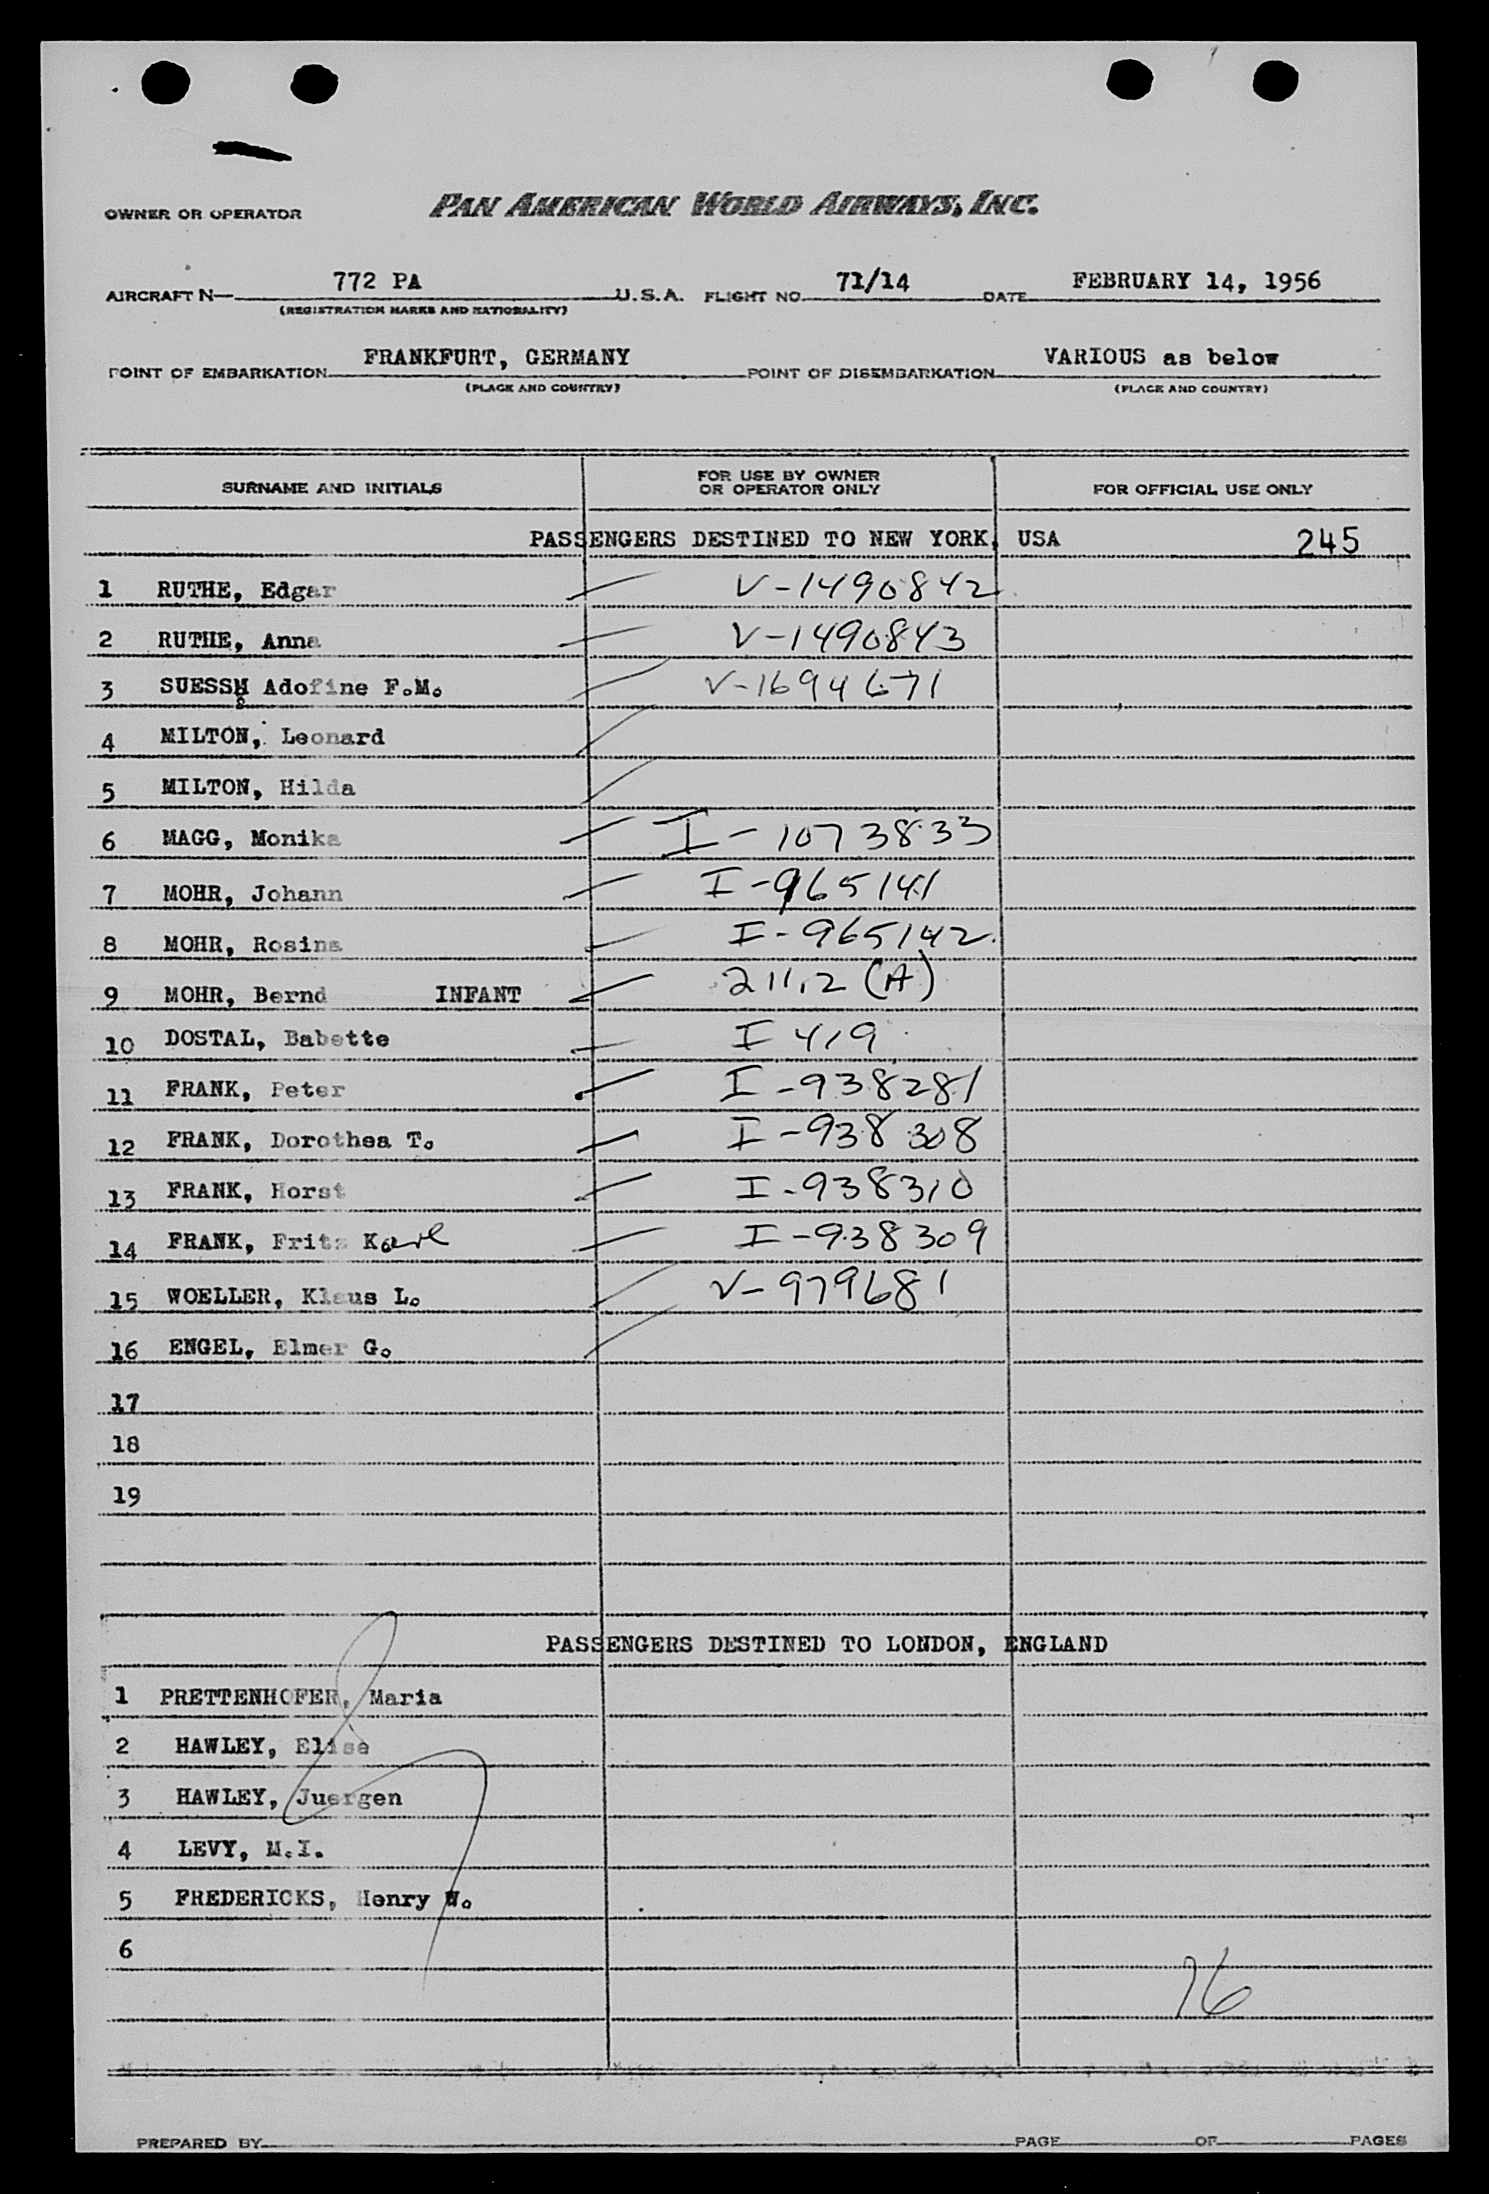 OWNER OR OPERATOR PAN AMERICAN WORLD AIRWAYS, INC.
AIRCRAFT N— 772 PA U.S.A. FLIGHT NO. 71/14 DATE FEBRUARY 14, 1956
(REGISTRATION MARKS AND NATIONALITY)
POINT OF EMBARKATION FRANKFURT, GERMANY POINT OF DISEMBARKATION VARIOUS as below
(PLACE AND COUNTRY) (PLACE AND COUNTRY)
SURNAME AND INITIALS FOR USE BY OWNER OR OPERATOR ONLY FOR OFFICIAL USE ONLY
PASSENGERS DESTINED TO NEW YORK, USA 245
1 RUTHE, Edgar V-1490842
2 RUTHE, Anna V-1490843
3 SUESS, Adofine F.M. V-1694671
4 MILTON, Leonard
5 MILTON, Hilda
6 MAGG, Monika I-1073833
7 MOHR, Johann I-965141
8 MOHR, Rosina I-965142
9 MOHR, Bernd INFANT 211.2 (A)
10 DOSTAL, Babette I 419
11 FRANK, Peter I-938281
12 FRANK, Dorothea T. I-938308
13 FRANK, Horst I-938310
14 FRANK, Fritz Karl I-938309
15 WOELLER, Klaus L. V-979681
16 ENGEL, Elmer G.
17
18
19
PASSENGERS DESTINED TO LONDON, ENGLAND
1 PRETTENHOFER, Maria
2 HAWLEY, Elise
3 HAWLEY, Juergen
4 LEVY, M.I.
5 FREDERICKS, Henry W.
6
16
PREPARED BY PAGE OF PAGES